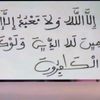 إلا الله ولا نعبد إلا إ
مخلصين له الدين ولو كره
الكافرون